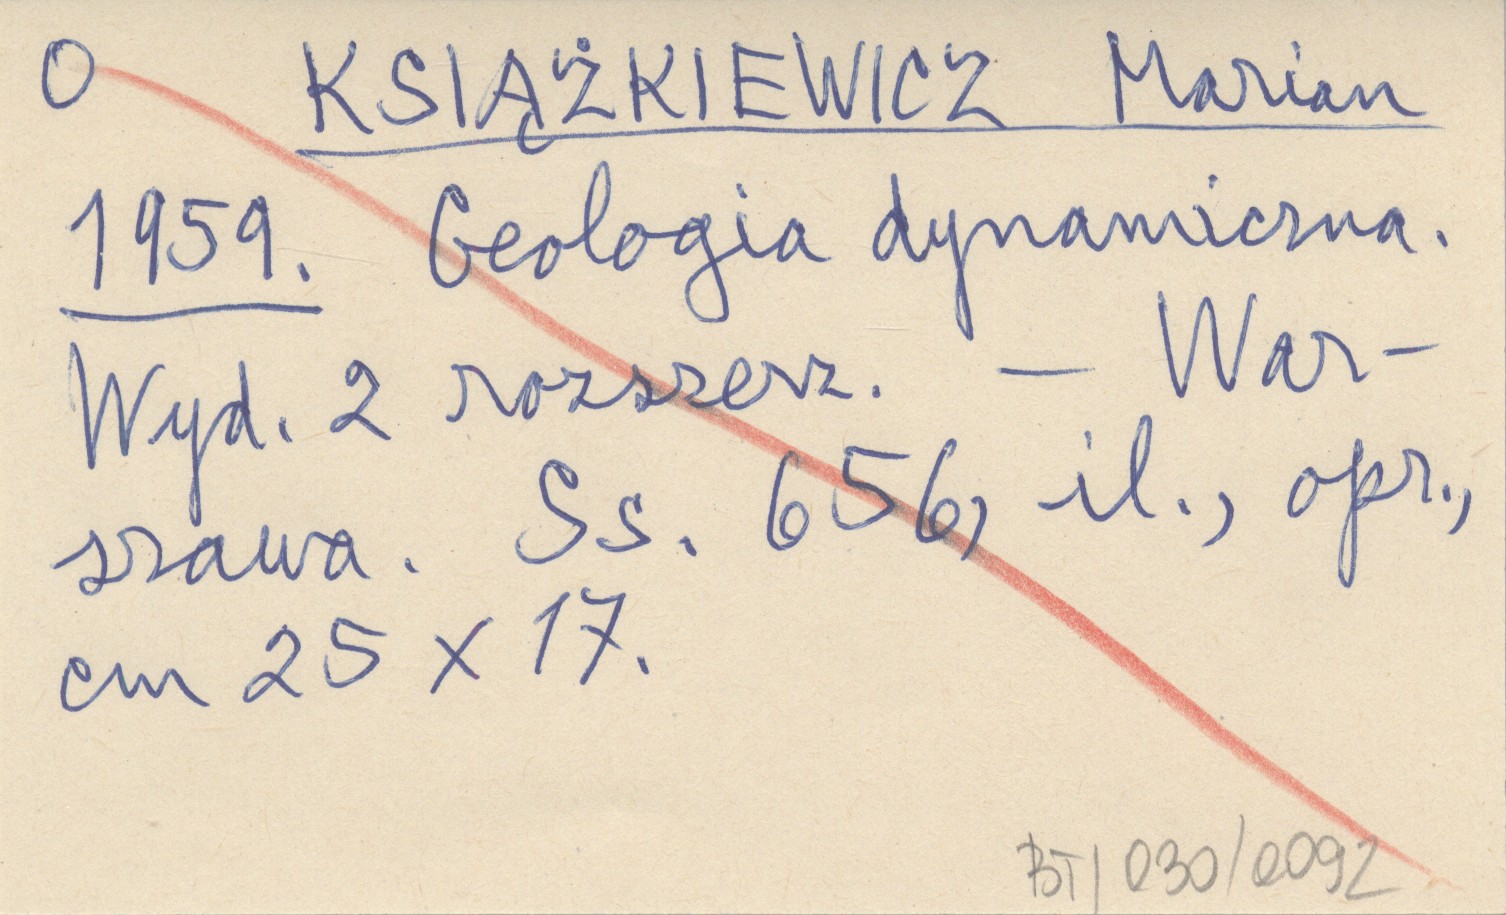 O KSIĄŻKIEWICZ Marian
1959. Geologia dynamiczna.
Wyd. 2 rozszerz. — War-
szawa. Ss. 656, il., opr.,
cm 25 x 17.
BT/030/0092